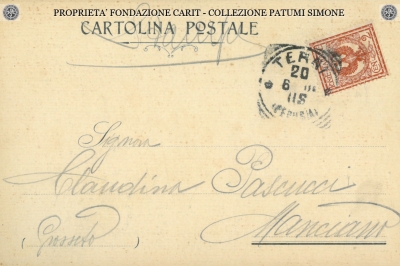 PROPRIETA' FONDAZIONE CARIT - COLLEZIONE PATUMI SIMONE
CARTOLINA POSTALE
Stampe
TERNI
20
(PERUGIA)
Signora
Claudina Pascucci
Manciano
(Grosseto)